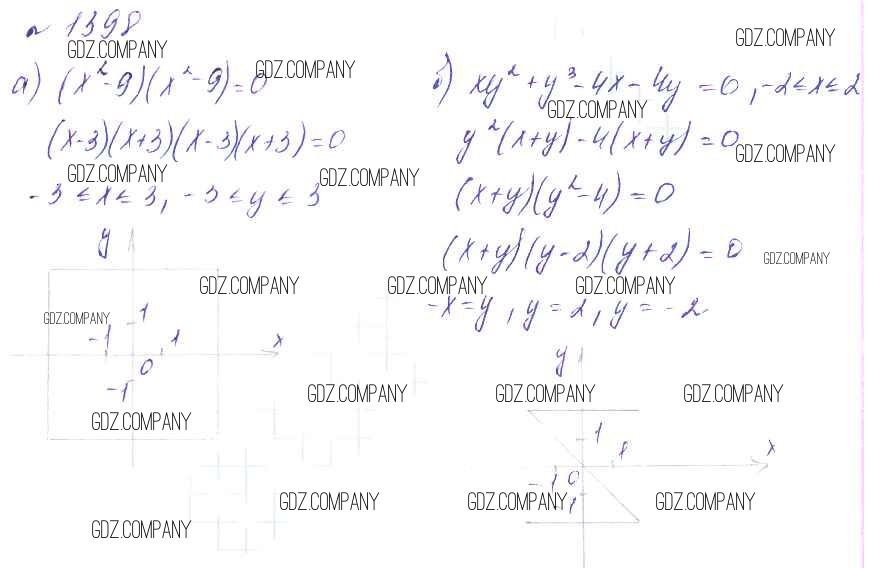 № 1398
GDZ.COMPANY
GDZ.COMPANY
GDZ.COMPANY
а) (x²-9)(x²-9)=0
(x-3)(x+3)(x-3)(x+3)=0
GDZ.COMPANY
GDZ.COMPANY
-3 ≤ x ≤ 3, -3 ≤ y ≤ 3
y
GDZ.COMPANY
GDZ.COMPANY
1
-1
1
x
0
-1
GDZ.COMPANY
GDZ.COMPANY
GDZ.COMPANY
GDZ.COMPANY
б) xy²+y³-4x-4y=0, -2≤x≤2
GDZ.COMPANY
y²(x+y)-4(x+y)=0
GDZ.COMPANY
(x+y)(y²-4)=0
(x+y)(y-2)(y+2)=0
GDZ.COMPANY
GDZ.COMPANY
GDZ.COMPANY
-x=y, y=2, y=-2
y
GDZ.COMPANY
GDZ.COMPANY
1
1
x
-1
0
GDZ.COMPANY
GDZ.COMPANY
1